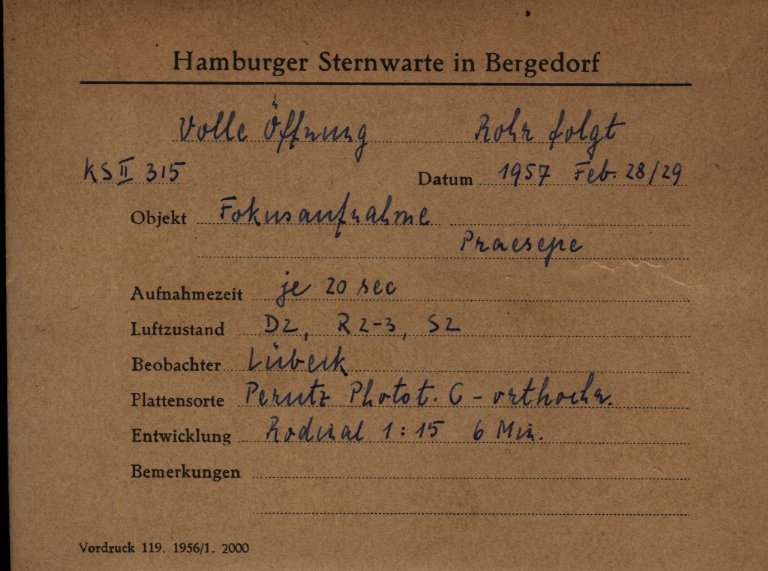 Hamburger Sternwarte in Bergedorf
Volle Öffnung Rohr folgt
KS II 315 Datum 1957 Feb. 28/29
Objekt Fokusaufnahme
Praesepe
Aufnahmezeit je 20 sec
Luftzustand D2, R2-3, S2
Beobachter Lübeck
Plattensorte Perutz Photot. C - orthochr.
Entwicklung Rodinal 1:15 6 Min.
Bemerkungen
Vordruck 119. 1956/1. 2000